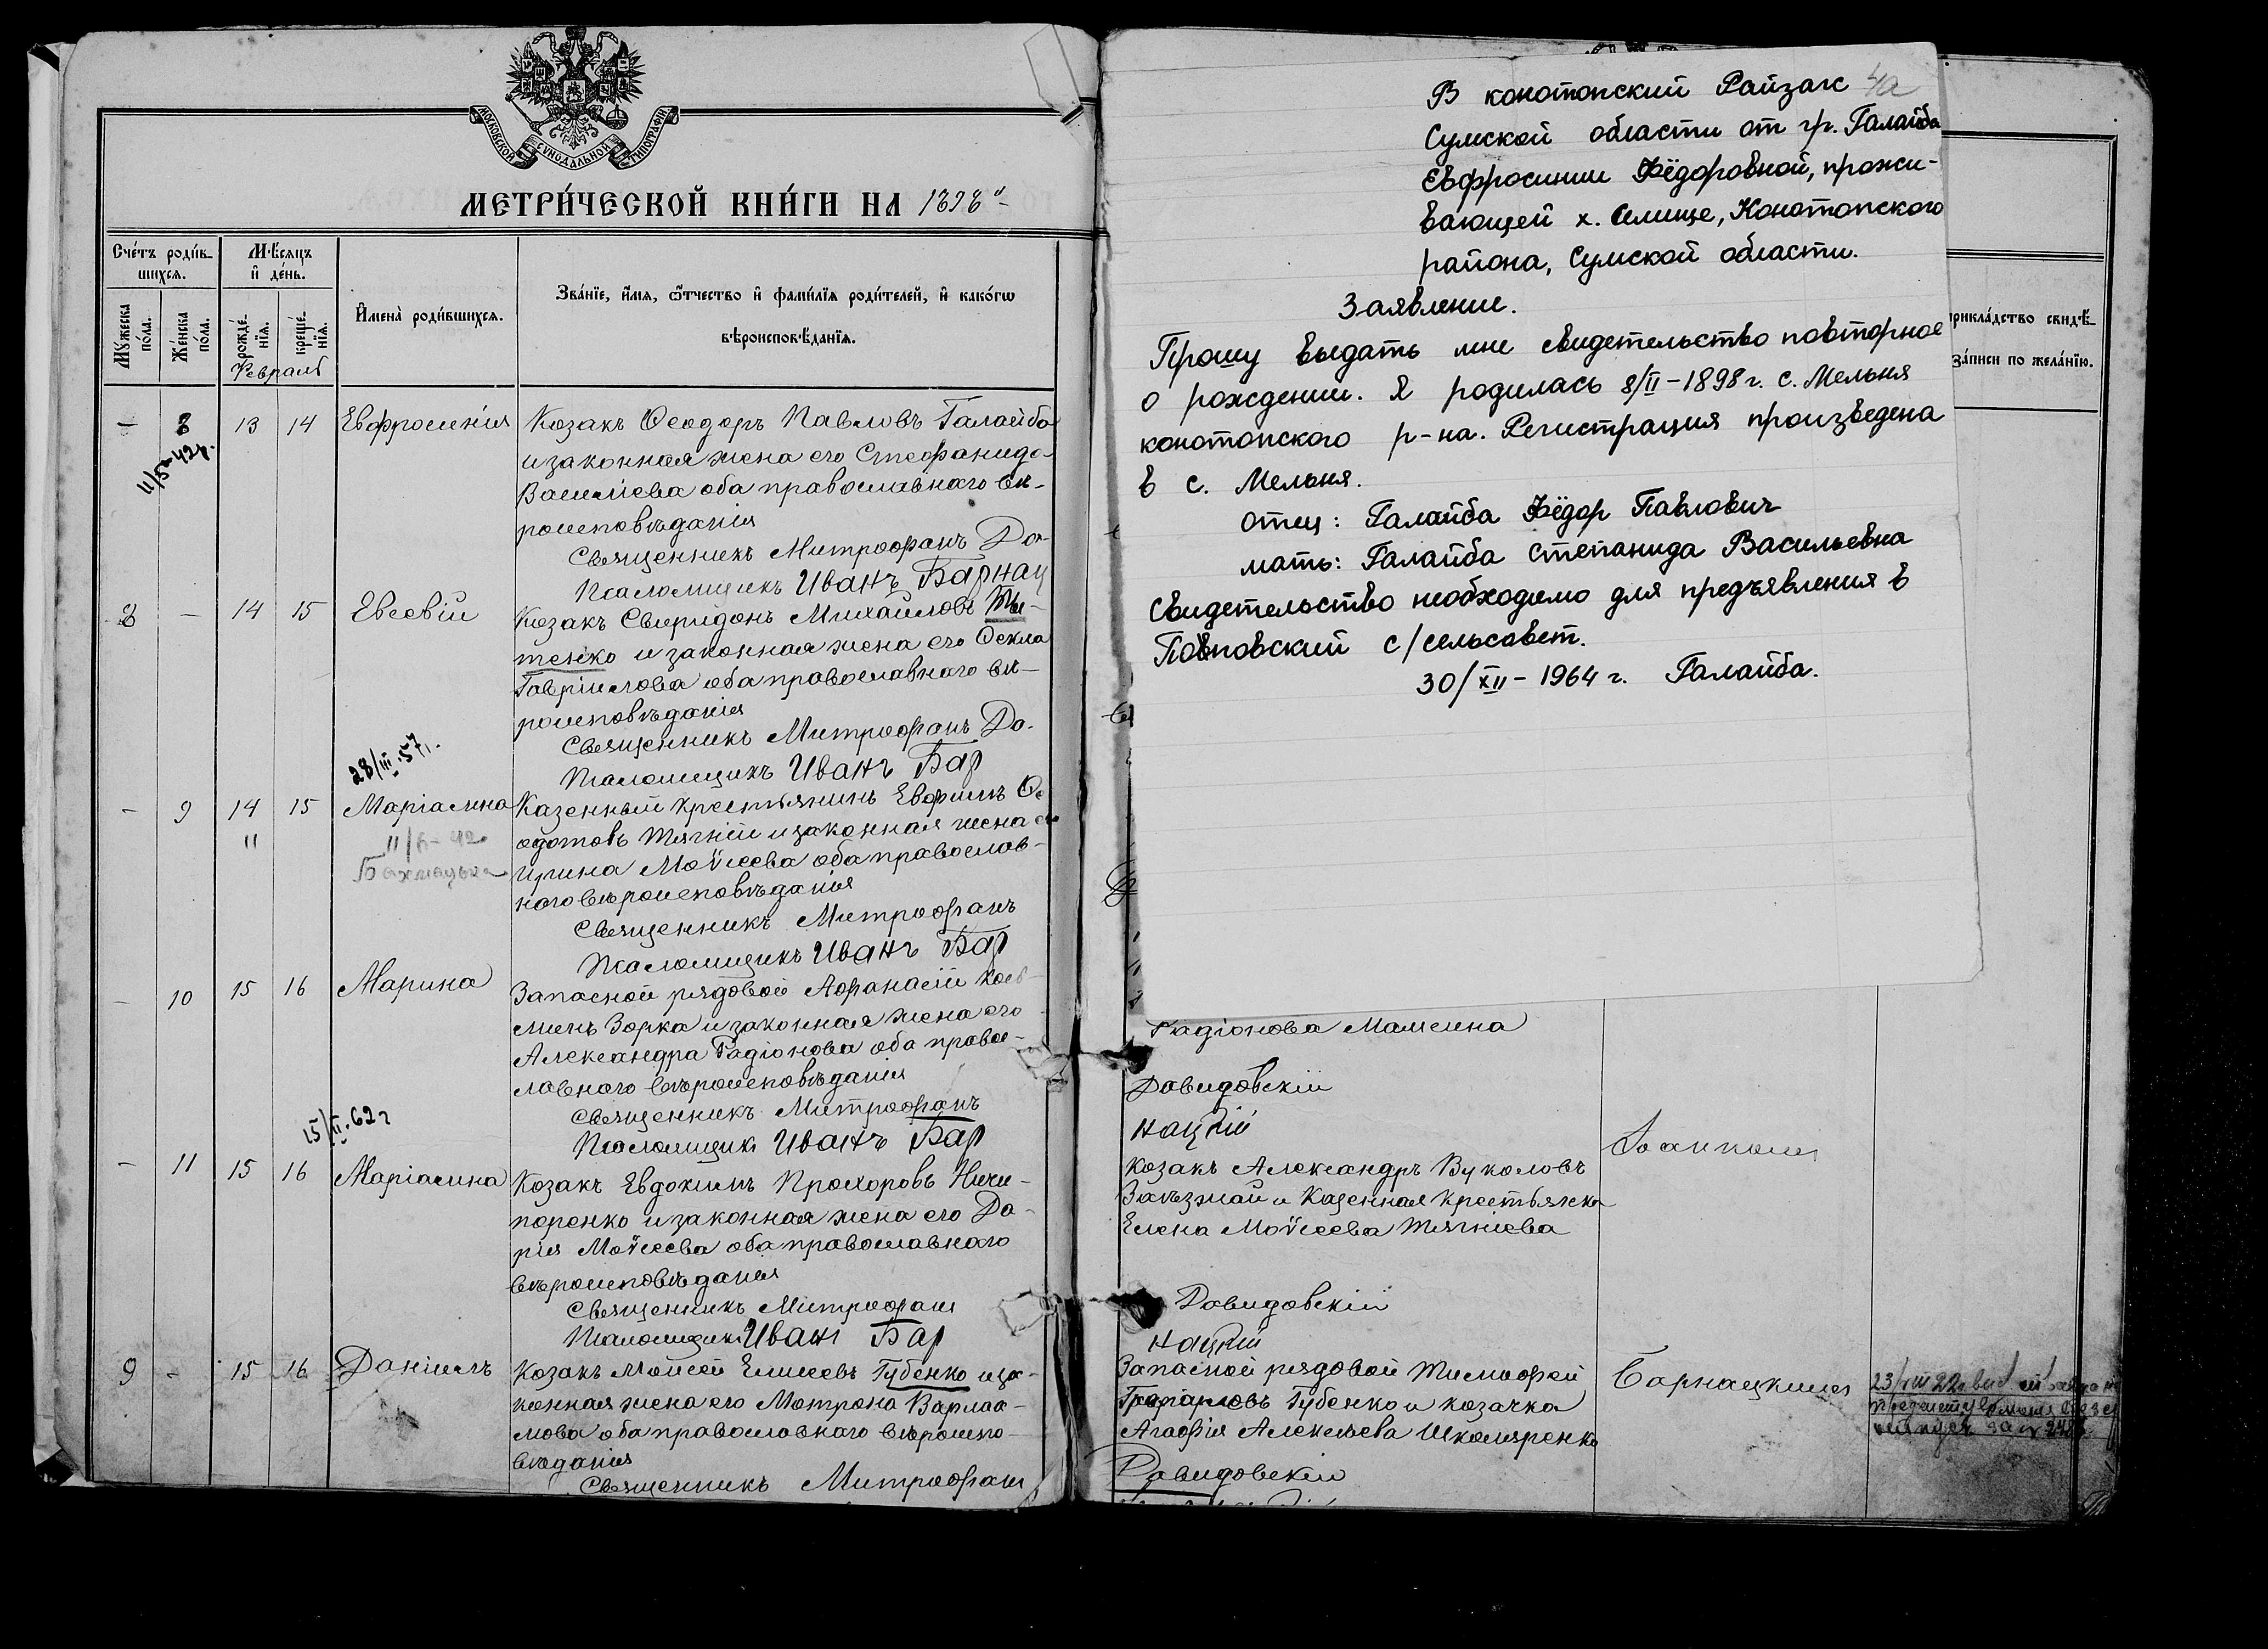 МОСКОВСКОЙ СѴНОДАЛЬНОЙ ТИПОГРАФІИ.
МЕТРИ́ЧЕСКОЙ КНИ́ГИ НА 1898
Сче́тъ роди́в-
шихся.
Мѣ́сяцъ
и҆ де́нь.
Му́жеска по́ла.
Же́нска по́ла.
рожде́нїя.
креще́нїя.
Февраль
И҆мена̀ роди́вшихся.
Зва́нїе, и҆́мя, ѻ҆́тчество и҆ фами́лїя роди́телей, и҆ како́гѡ
вѣроисповѣ́данїя.
— 8 13 14 Евфросинія
11/5-42г.
Козакъ Ѳеодоръ Павловъ Галайба
и законная жена его Стефанида
Василіева оба православнаго вѣ-
роисповѣданія
Священникъ Митрофанъ Да-
Псаломщикъ Иванъ Барнац
8 — 14 15 Евсевій
Козакъ Свиридонъ Михайловъ Ти-
тенко и законная жена его Ѳекла
Гавріилова оба православнаго вѣ-
роисповѣданія
Священникъ Митрофанъ Да-
Псаломщикъ Иванъ Бар
28/III.57г.
— 9 14 15 Маріамна
11
Казенный крестьянинъ Евфимъ Ѳе
одотовъ Тягній и законная жена его
Ирина Моѵсеева оба православ-
наго вѣроисповѣданія
Священникъ Митрофанъ
Псаломщикъ Иванъ Бар
— 10 15 16 Марина
Запасной рядовой Афанасій Кось
минъ Зорка и законная жена его
Александра Радіонова оба право-
славнаго вѣроисповѣданія
Священникъ Митрофанъ
Псаломщикъ Иванъ Бар
15/II.62г
— 11 15 16 Маріамна
Козакъ Евдокимъ Прохоровъ Ничи-
поренко и законная жена его Да-
рія Моѵсеева оба православнаго
вѣроисповѣданія
Священникъ Митрофанъ
Псаломщикъ Иванъ Бар
9 - 15 16 Даніилъ
Козакъ Мойсей Елисеевъ Губенко и за-
конная жена его Матрона Варлаа-
мова оба православнаго вѣроиспо-
вѣданія
Священникъ Митрофанъ
4а
В конотопский Райзагс
Сумской области от гр. Галайба
Евфросинии Фёдоровной, прожи-
вающей х. Селище, Конотопского
района, Сумской области.
Заявление.
Прошу выдать мне свидетельство повторное
о рождении. Я родилась 8/II-1898г. с. Мельня
конотопского р-на. Регистрация произведена
в с. Мельня.
отец: Галайба Фёдор Павлович
мать: Галайба Степанида Васильевна
Свидетельство необходимо для предъявления в
Поповский с/сельсовет.
30/XII-1964 г. Галайба.
рикла́дство свидѣ́-
за́писи по жела́нїю.
Радіонова Мамсина
Давидовскій
нацкій
Козакъ Александръ Вуколовъ
Заѣзжай и Казенная крестьянка
Елена Моѵсеева Тягніева
Давидовскій
нацкій
Запасной рядовой Тимофей
Губенко и козачка
Агафія Алексѣева Школяренко
Барнацкимъ
Давидовскій